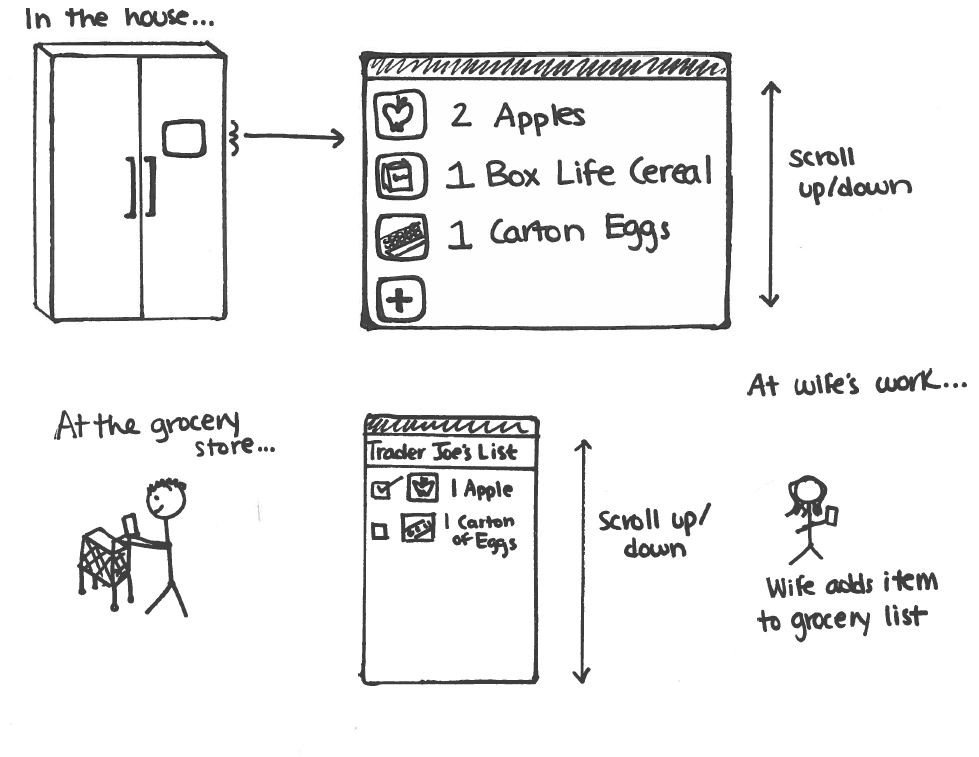 In the house...
2 Apples
1 Box Life Cereal
1 Carton Eggs
+
scroll
up/down
At the grocery
store...
Trader Joe's List
1 Apple
1 Carton
of Eggs
scroll up/
down
At wife's work...
Wife adds item
to grocery list